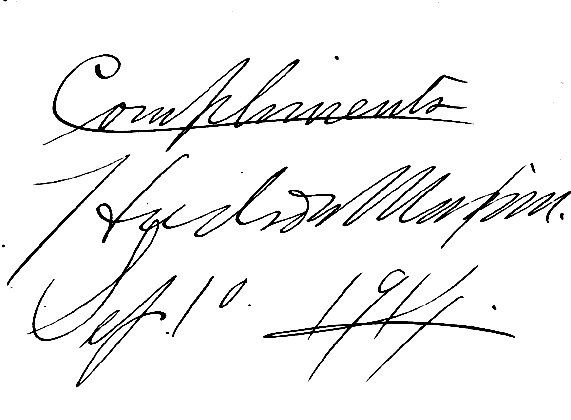 Compliments
Hudson Maxim.
Sep. 10. 1914.